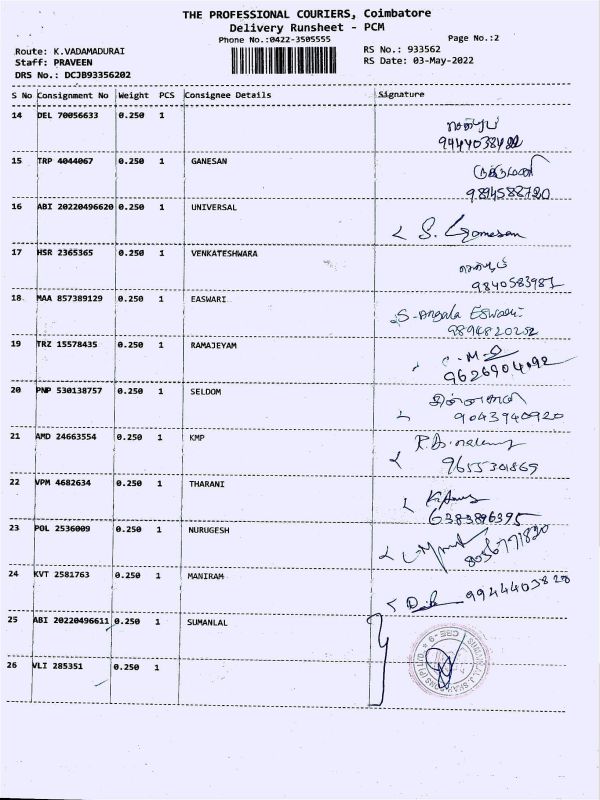 THE PROFESSIONAL COURIERS, Coimbatore
Delivery Runsheet - PCM
Phone No.:0422-3505555 Page No.:2
Route: K.VADAMADURAI RS No.: 933562
Staff: PRAVEEN RS Date: 03-May-2022
DRS No.: DCJB93356202
S No Consignment No Weight PCS Consignee Details Signature
14 DEL 70056633 0.250 1
15 TRP 4044067 0.250 1 GANESAN
9894588720
16 ABI 20220496620 0.250 1 UNIVERSAL
S.
17 HSR 2365365 0.250 1 VENKATESHWARA
9840583981
18 MAA 857389129 0.250 1 EASWARI
S. Angala Eswari
9894820252
19 TRZ 15578435 0.250 1 RAMAJEYAM
9626904092
20 PNP 530138757 0.250 1 SELDOM
9043940920
21 AMD 24663554 0.250 1 KMP
9655301869
22 VPM 4682634 0.250 1 THARANI
6383896395
23 POL 2536009 0.250 1 NURUGESH
8056771820
24 KVT 2581763 0.250 1 MANIRAM
25 ABI 20220496611 0.250 1 SUMANLAL
26 VLI 285351 0.250 1